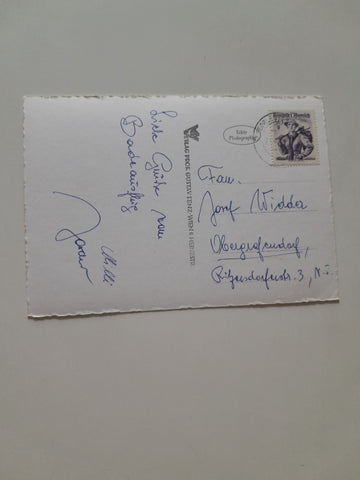 Liebe Grüße vom
Badeausflug
Willi
VERLAG PROK. GUSTAV LENZ, WIEN
Echte
Photographie
Republik Österreich
Fam.
Josef Widder
Obergrafendorf,
Ritzersdorferstr. 3, N.Ö.